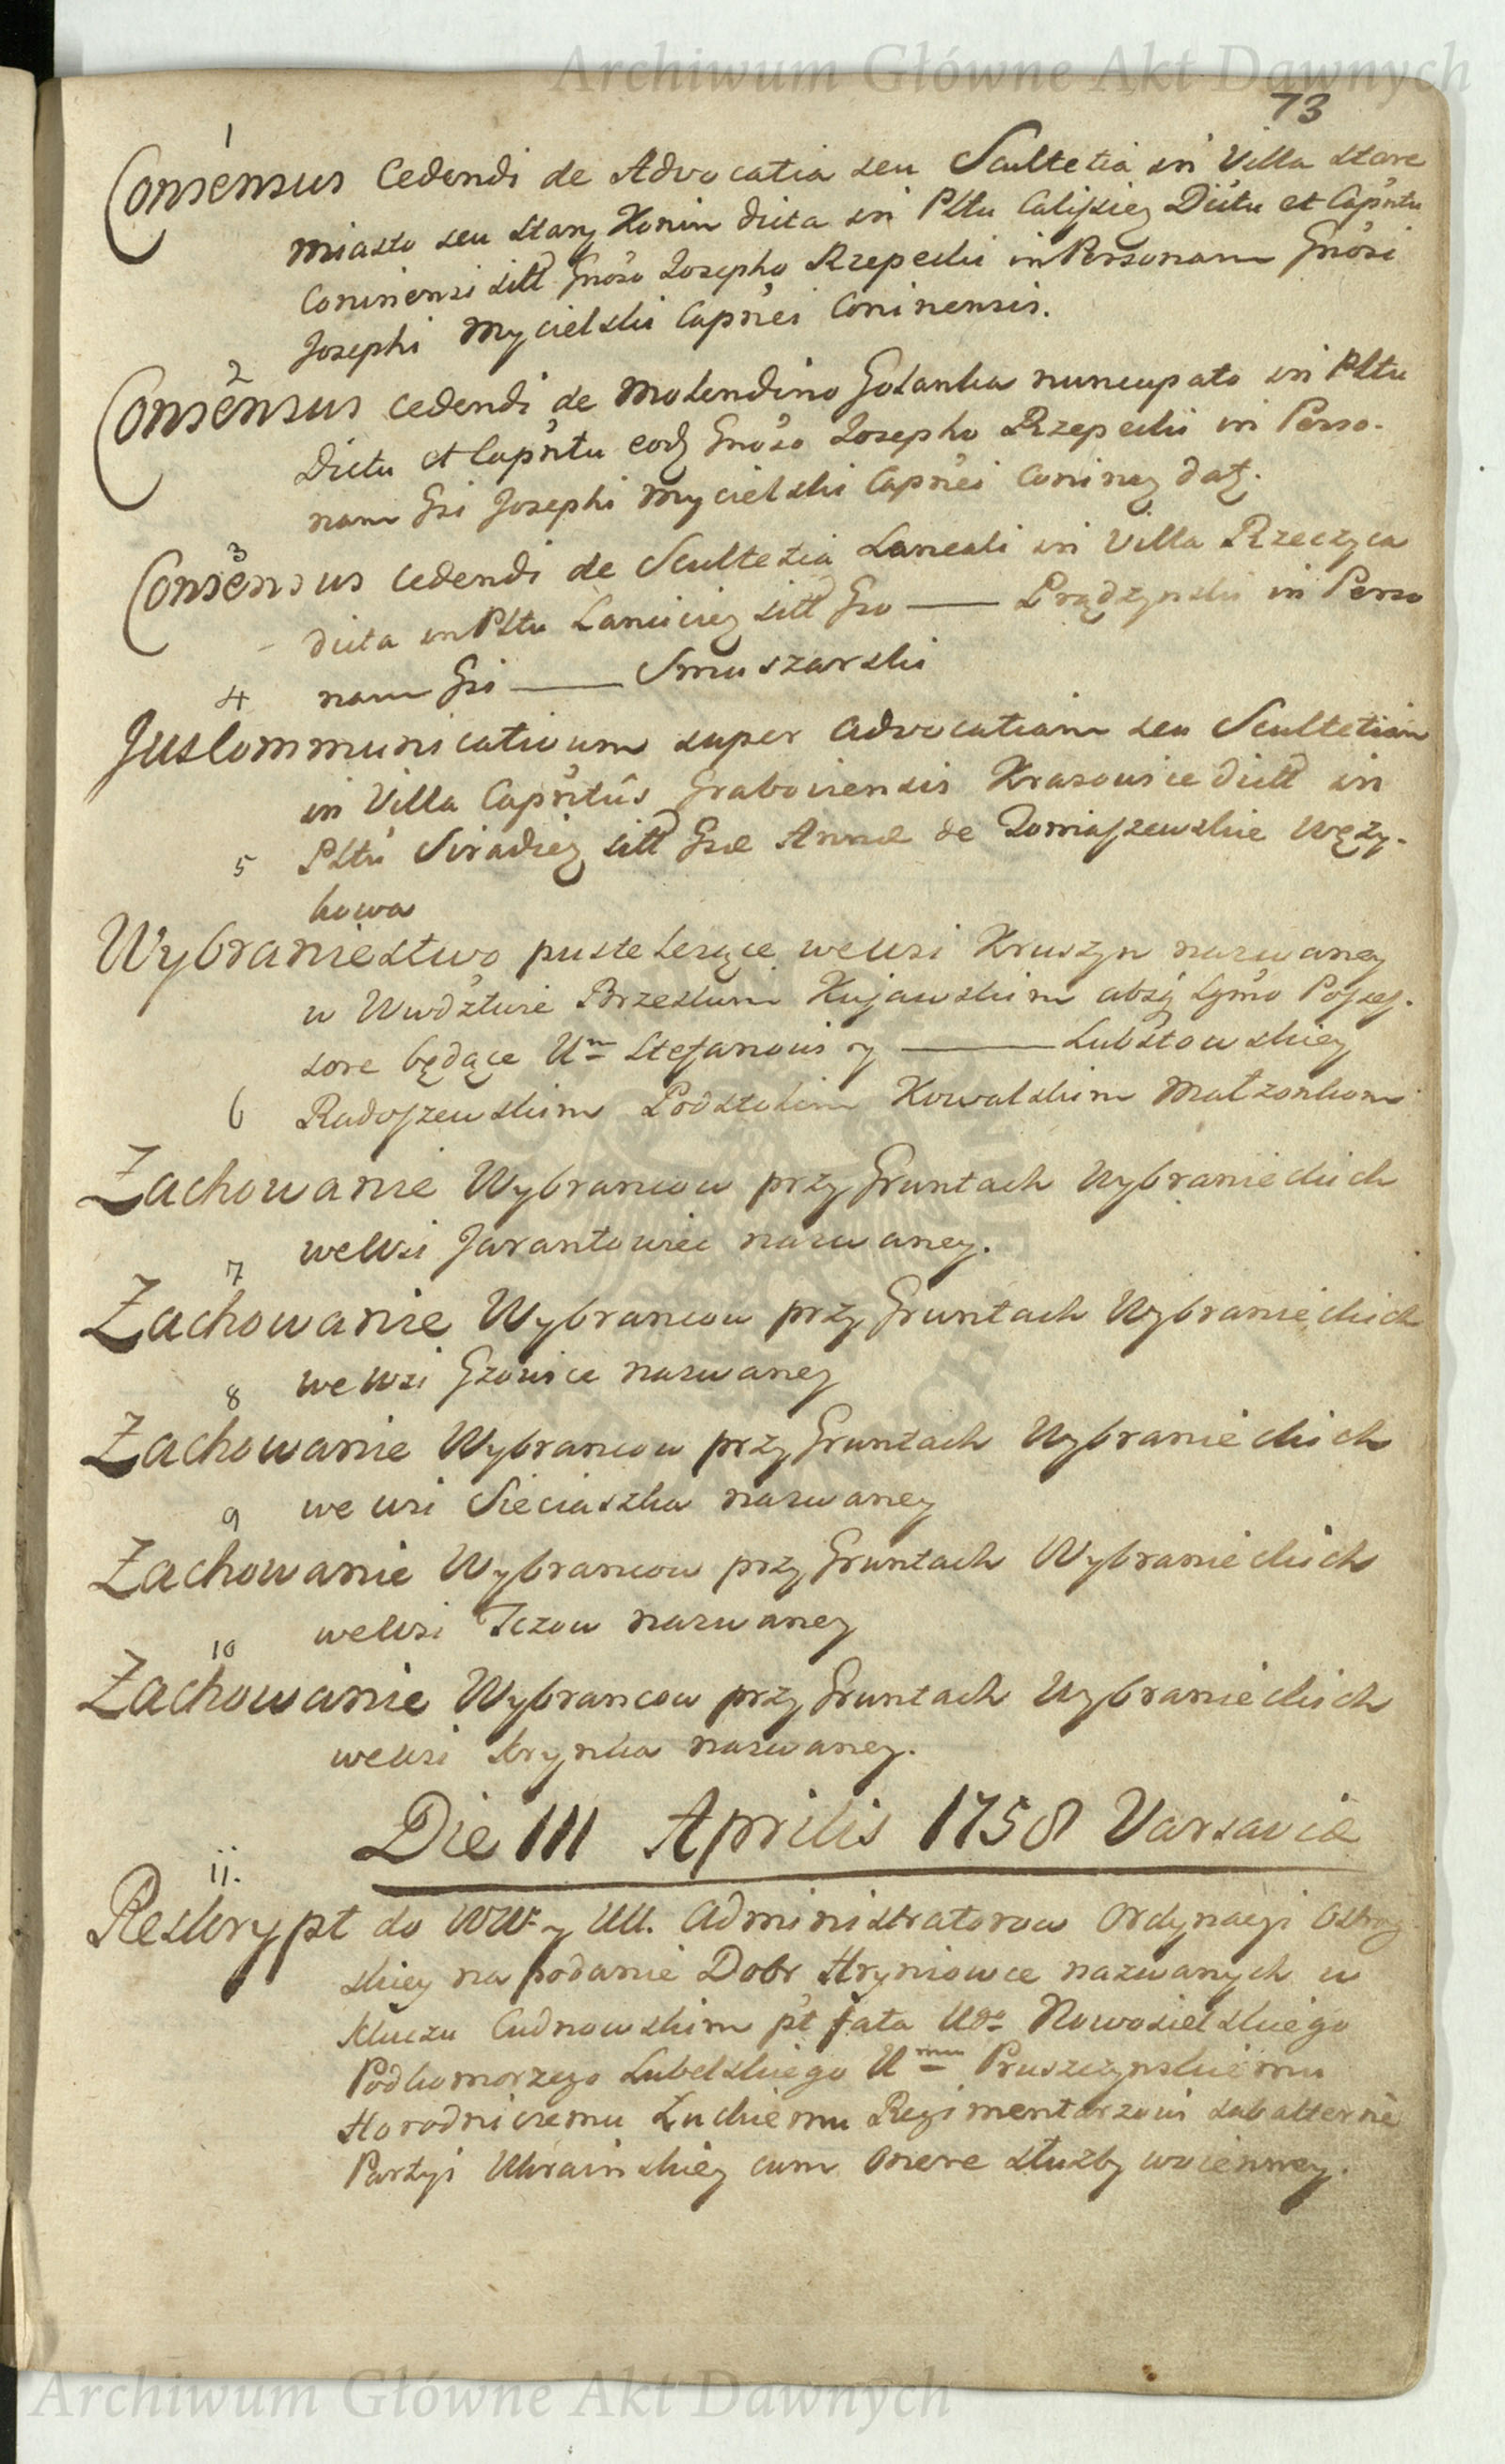 Archiwum Główne Akt Dawnych
73
1
Consensus Cedendi de Advocatia seu Scultetia in Villa Stare
Miasto seu Stary Konin dicta in Pltu Calissiey Dictu et Capntu
Coninensi sitt Gnoso Josepho Rzepecki in Personam Gnosi
Josephi Mycielski Capnei Coninensis.
2
Consensus cedendi de Molendino Golanka nuncupato in Pltu
Dictu et Capntu eod Gnoso Josepho Rzepecki in Perso-
nam Gsi Josephi Mycielski Capnei Coniney dat.
3
Consensus cedendi de Scultetia Laneali in Villa Rzeczyca
dicta in Pltu Lanciciey sitt Gso — Prądzynski in Perso
nam Gsi — Smuszarski
4
Jus Communicativum super Advocatiam seu Scultetiam
in Villa Capntûs Graboviensis Krasowice dictt in
Pltu Siradiey sitt Gsæ Annæ de Tomaszewskie Węży-
kowa
5
Wybraniectwo puste leżące we wsi Kruszyn nazwaney
w Wwdztwie Brzeskim Kujawskim absq Lgmo Posses-
sore będące Um Stefanowi y — Lubstowskiey
Radoszewskim Podstolim Kowalskim Małzonkom
6
Zachowanie Wybrancow przy Gruntach Wybranieckich
we Wsi Jarantowice nazwaney.
7
Zachowanie Wybrancow przy Gruntach Wybranieckich
we wsi Gzowice nazwaney
8
Zachowanie Wybrancow przy Gruntach Wybranieckich
we wsi Sieciaszka nazwaney
9
Zachowanie Wybrancow przy Gruntach Wybranieckich
we Wsi Tczow nazwaney
10
Zachowanie Wybrancow przy Gruntach Wybranieckich
we wsi Krynka nazwaney.
Die III Aprilis 1758 Varsaviæ
11.
Reskrypt do WW. y UU. Administratorow Ordynacyi Ostrog
skiey na podanie Dobr Hryniowce nazwanych w
Kluczu Cudnowskim pt fata Ugo Nowosielskiego
Podkomorzego Lubelskiego Umu Pruszczynskiemu
Horodniczemu Łuckiemu Regimentarzowi subalterne
Partyi Ukrainskiey cum onere służby woienney.
Archiwum Główne Akt Dawnych